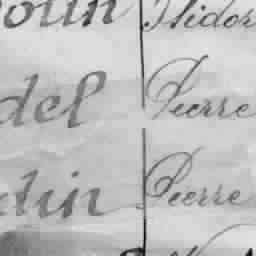 olin Isidor
del Pierre
din Pierre